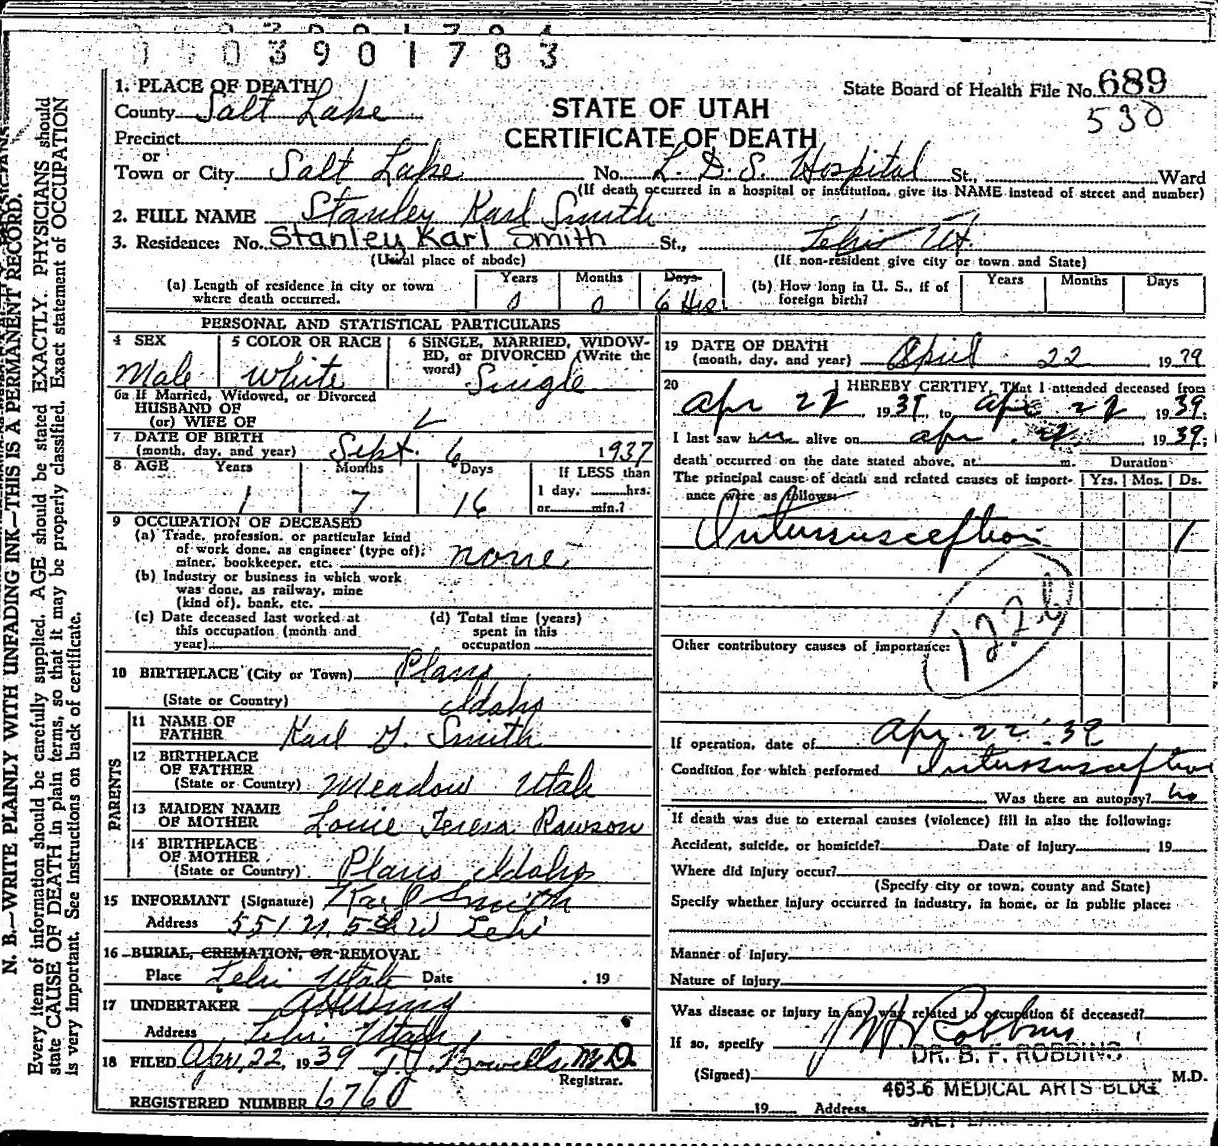 03901783
1. PLACE OF DEATH
State Board of Health File No. 689
County Salt Lake
STATE OF UTAH
530
Precinct
CERTIFICATE OF DEATH
or
Town or City Salt Lake No. L. D. S. Hospital St., Ward
(If death occurred in a hospital or institution, give its NAME instead of street and number)
2. FULL NAME Stanley Karl Smith
3. Residence: No. Stanley Karl Smith St., Lehi Ut.
(Usual place of abode) (If non-resident give city or town and State)
(a) Length of residence in city or town where death occurred. Years 0 Months 0 Days 6 Hrs.
(b) How long in U. S., if of foreign birth? Years Months Days
PERSONAL AND STATISTICAL PARTICULARS
4 SEX Male
5 COLOR OR RACE White
6 SINGLE, MARRIED, WIDOWED, or DIVORCED (Write the word) Single
6a If Married, Widowed, or Divorced
HUSBAND OF
(or) WIFE OF
7 DATE OF BIRTH
(month, day, and year) Sept. 6 1937
8 AGE Years 1 Months 7 Days 16
If LESS than
1 day, hrs.
or min.?
9 OCCUPATION OF DECEASED
(a) Trade, profession, or particular kind
of work done, as engineer (type of);
miner, bookkeeper, etc. none
(b) Industry or business in which work
was done, as railway, mine
(kind of), bank, etc.
(c) Date deceased last worked at
this occupation (month and
year)
(d) Total time (years)
spent in this
occupation
10 BIRTHPLACE (City or Town) Plano
(State or Country) Idaho
PARENTS
11 NAME OF
FATHER Karl G. Smith
12 BIRTHPLACE
OF FATHER
(State or Country) Meadow Utah
13 MAIDEN NAME
OF MOTHER Louie Teresa Rawson
14 BIRTHPLACE
OF MOTHER
(State or Country) Plano Idaho
15 INFORMANT (Signature) Karl Smith
Address 551 N. 5th W Lehi
16 BURIAL, CREMATION, OR REMOVAL
Place Lehi Utah Date . 19
17 UNDERTAKER
Address Lehi Utah
18 FILED Apr. 22, 1939 M.D.
Registrar.
REGISTERED NUMBER 6760
19 DATE OF DEATH
(month, day, and year) April 22 1939
20 I HEREBY CERTIFY, That I attended deceased from
Apr 22 1939, to Apr 22 1939
I last saw him alive on Apr. 22 1939.
death occurred on the date stated above, at m. Duration
The principal cause of death and related causes of importance were as follows: Yrs. Mos. Ds.
Intussusception 1
122b
Other contributory causes of importance:
If operation, date of Apr. 22 '39
Condition for which performed Intussusception
Was there an autopsy? no
If death was due to external causes (violence) fill in also the following:
Accident, suicide, or homicide? Date of Injury , 19
Where did injury occur?
(Specify city or town, county and State)
Specify whether injury occurred in industry, in home, or in public place:
Manner of Injury
Nature of Injury
Was disease or injury in any way related to occupation of deceased?
If so, specify
Robbins
DR. B. F. ROBBINS
(Signed) M.D.
403-6 MEDICAL ARTS BLDG
19 Address
SALT LAKE
N. B.—WRITE PLAINLY WITH UNFADING INK—THIS IS A PERMANENT RECORD.
Every item of information should be carefully supplied. AGE should be stated EXACTLY. PHYSICIANS should
state CAUSE OF DEATH in plain terms, so that it may be properly classified. Exact statement of OCCUPATION
is very important. See instructions on back of certificate.